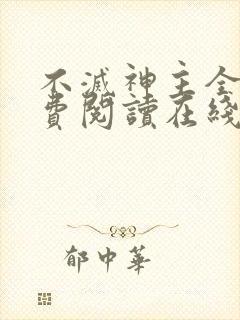 不滅神主全
費閱讀在綫
郁中華